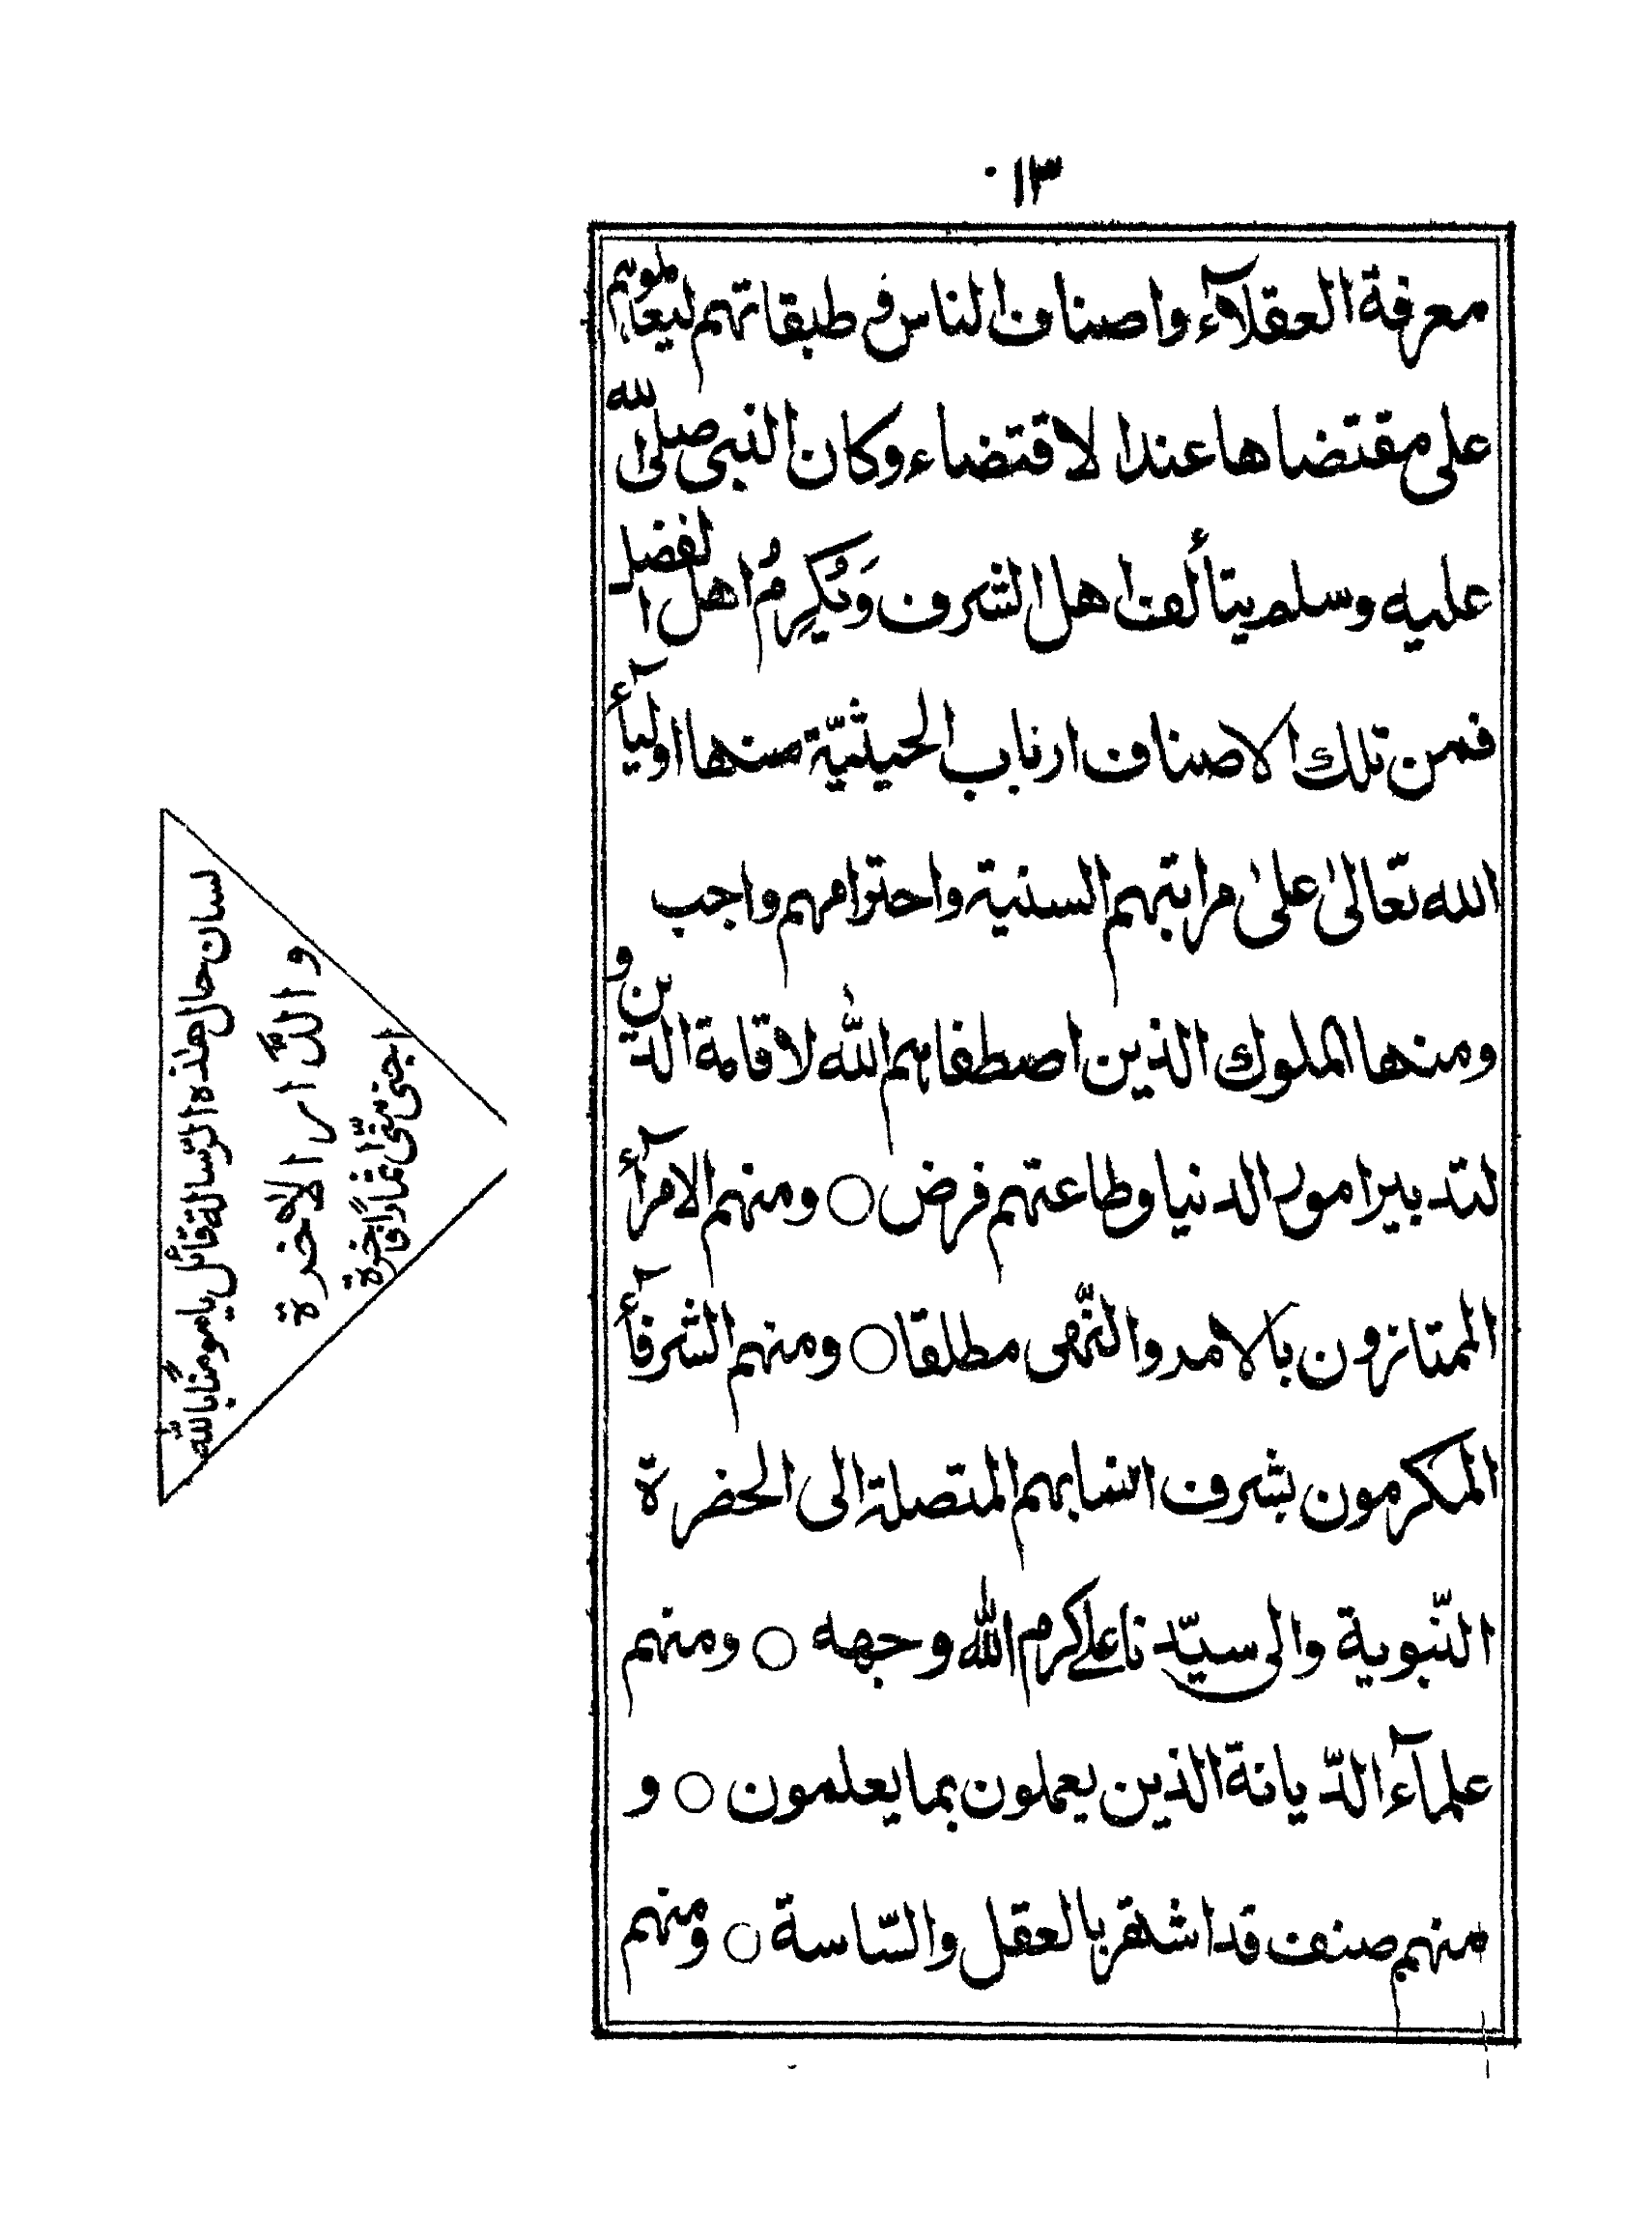 ١٣
معرفة العقلاء واصناف الناس في طبقاتهم ليعاملوهم
على مقتضاها عند الاقتضاء وكان النبي صلى الله
عليه وسلم يتألف اهل الشرف وَيُكرِمُ اهل الفضل
فمن تلك الاصناف ارباب الحيثيّة منها اوليآء
الله تعالىٰ علىٰ مراتبهم السنية واحترامهم واجب
ومنها الملوك الذين اصطفاهم الله لاقامة الدين و
لتدبير امور الدنيا وطاعتهم فرض ○ ومنهم الامرآء
الممتازون بالامر والنّهى مطلقا ○ ومنهم الشرفآء
المكرمون بشرف انسابهم المتصلة الى الحضرة
النّبوية والى سيّدنا على كرم الله وجهه ○ ومنهم
علمآء الدّيانة الذين يعملون بما يعلمون ○ و
منهم صنف قد اشتهر بالعقل والسّاسة ○ ومنهم
لسان حال هذه الرّسالة قائل يا مومنًا بالله
والدّار الاٰخرة
اجتنى منّى ثمارًا